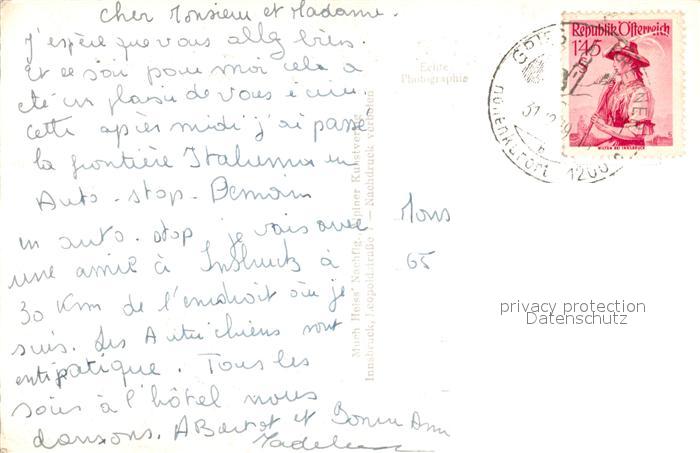 Cher Monsieur et Madame.
J'espère que vous allez bien.
Et ce soir pour moi cela a
été un plaisir de vous écrire.
Cette après midi j'ai passé
la frontière Italienne en
Auto-stop. Demain
en auto-stop je vais avec
une amie à Insbruck à
30 Km de l'endroit où je
suis. Les Autrichiens sont
antipatique. Tous les
soirs à l'hôtel nous
dansons. A Bientot et Bonne Ann
Madeleine
Mons
65
Echte
Photographie
Much Heiss' Nachflg., Alpiner Kunstverlag
Innsbruck, Leopoldstraße 7 — Nachdruck verboten
Republik Österreich
1.45
WILTEN BEI INNSBRUCK
GRIES AM BRENNER
1200
privacy protection
Datenschutz